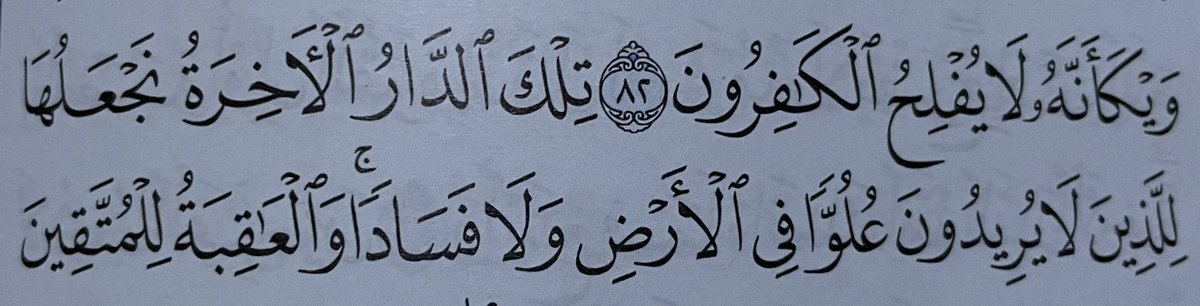 وَيْكَأَنَّهُۥ لَا يُفْلِحُ ٱلْكَـٰفِرُونَ ٨٢ تِلْكَ ٱلدَّارُ ٱلْـَٔاخِرَةُ نَجْعَلُهَا
لِلَّذِينَ لَا يُرِيدُونَ عُلُوًّا فِى ٱلْأَرْضِ وَلَا فَسَادًا ۚ وَٱلْعَـٰقِبَةُ لِلْمُتَّقِينَ